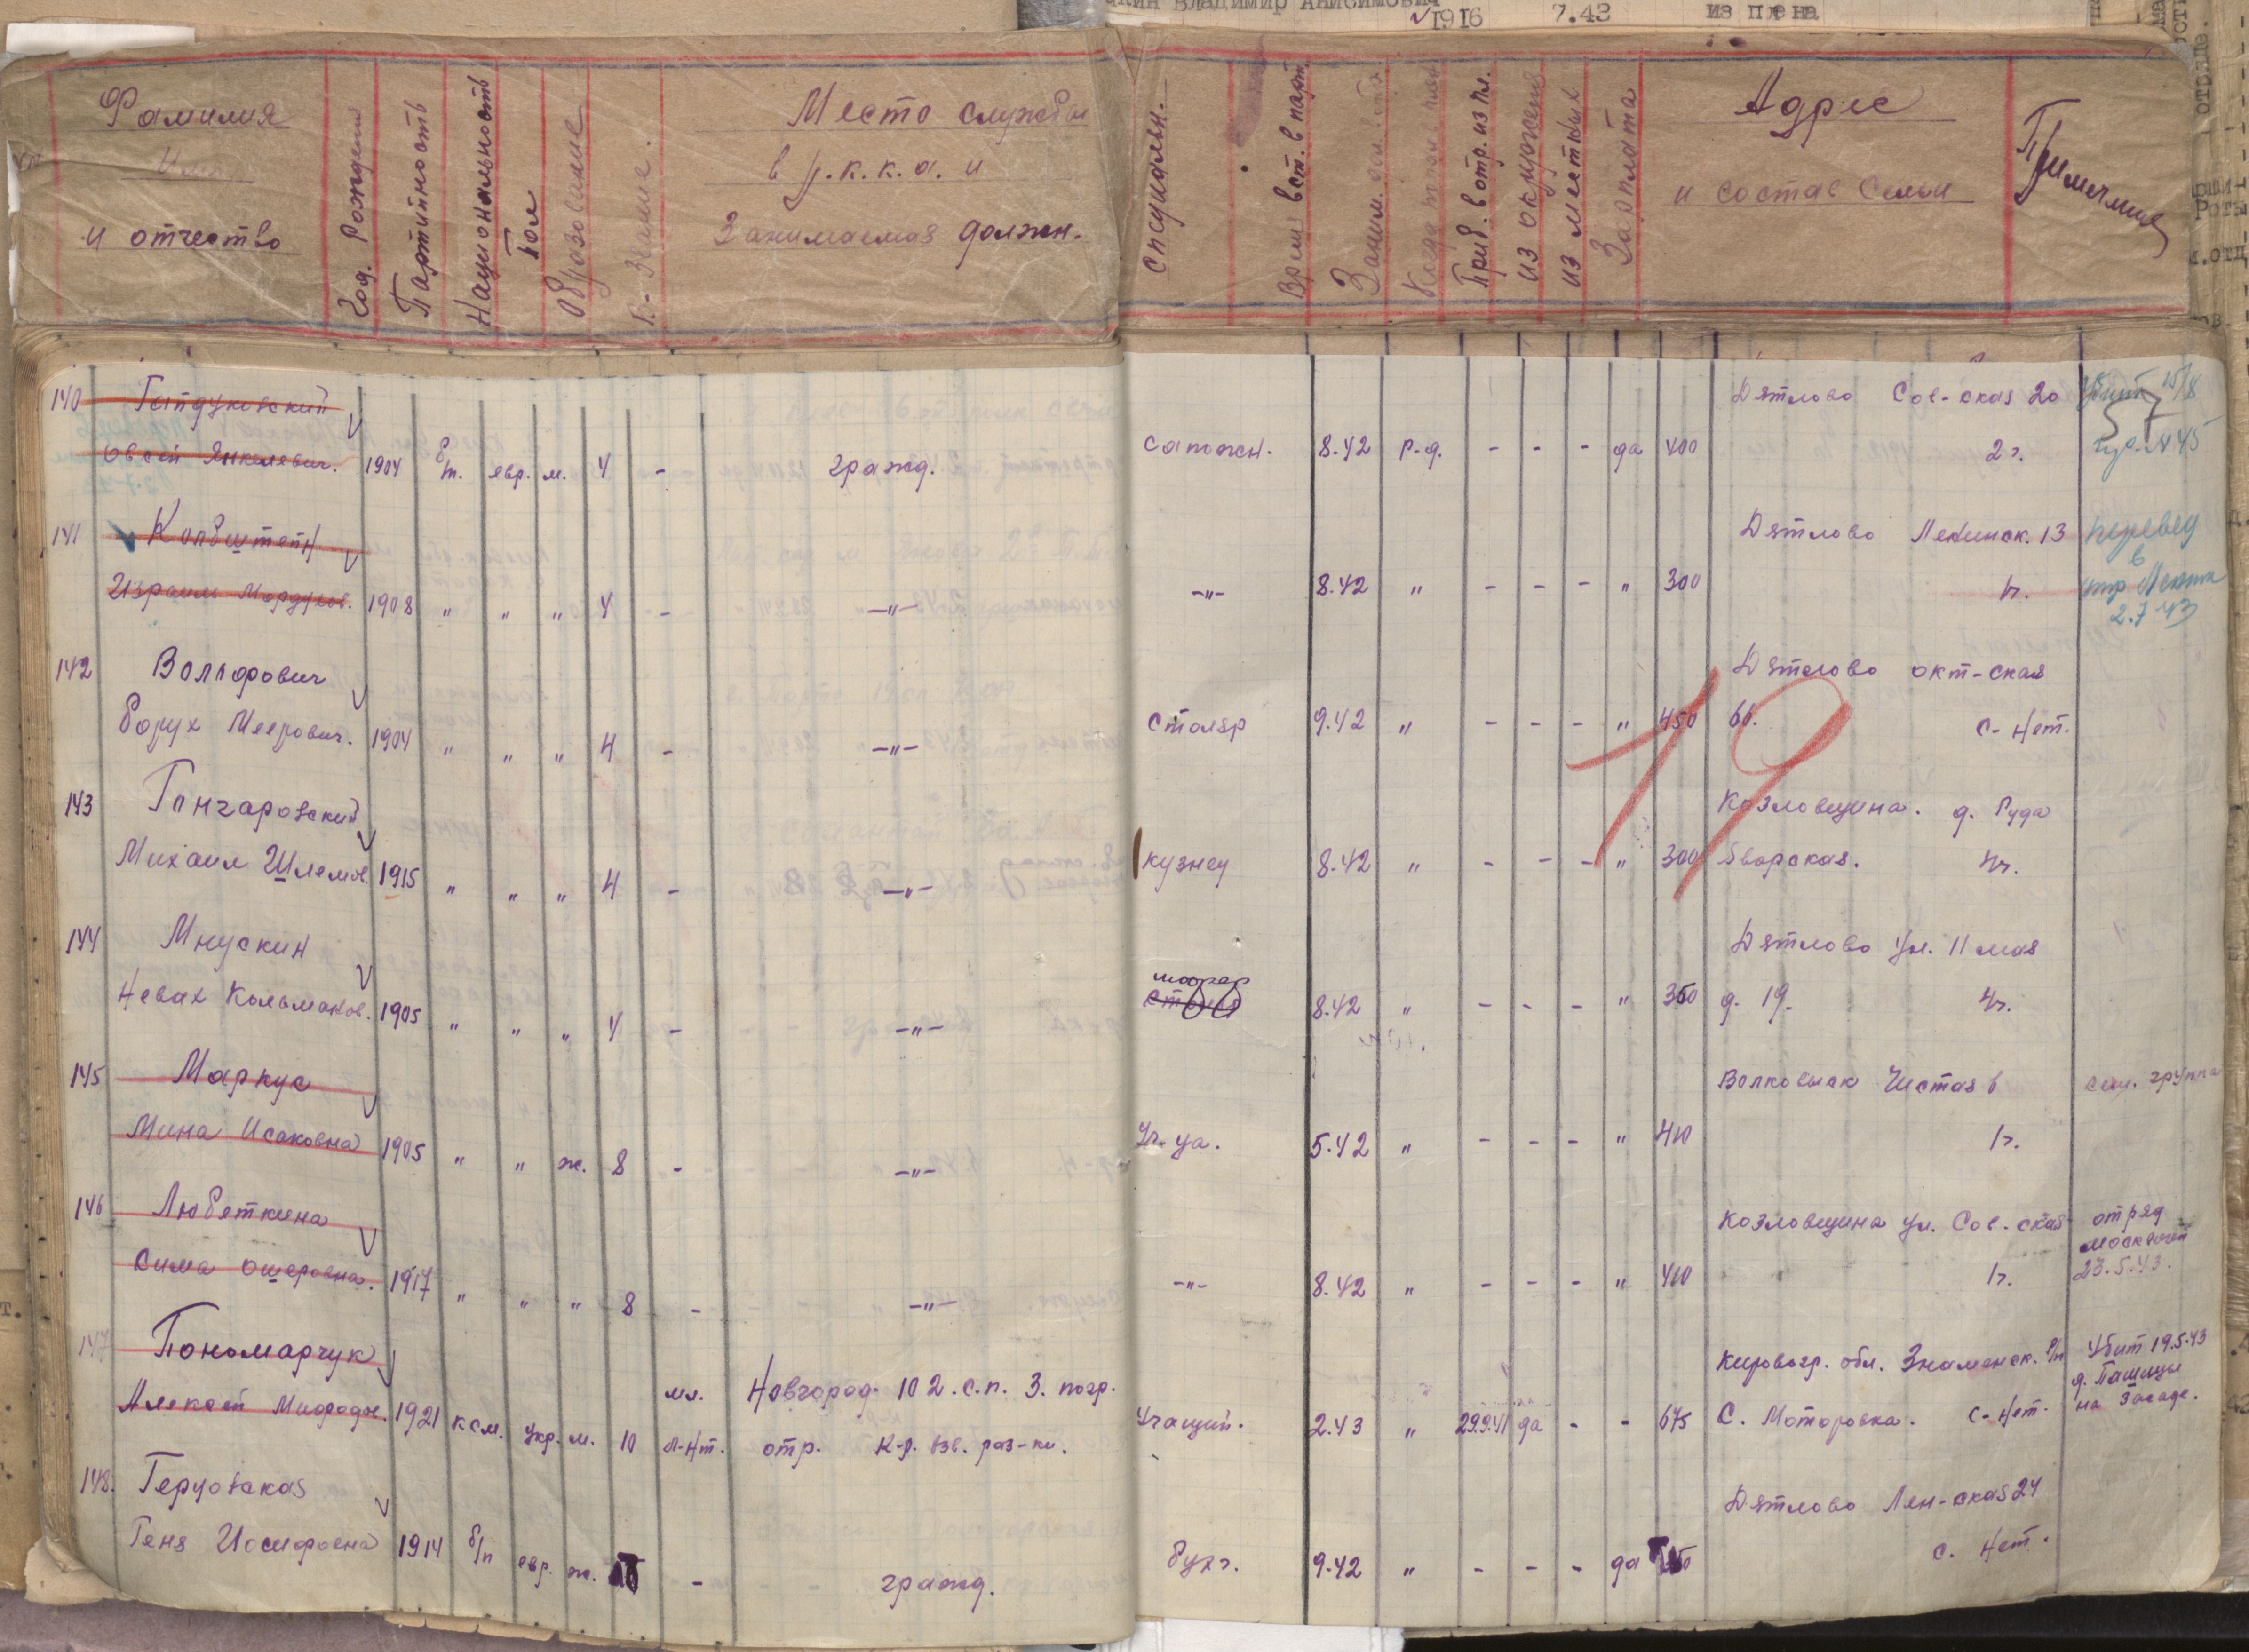 Владимир Анисимович
1916 7.43 из плена
Фамилия
Имя
и отчество
Год. Рождения
Партийность
Национальность
Пол
Образование
В-звание.
Место службы
в р.к.к.а. и
Занимаемая должн.
Специальн.
Время вст. в парт.
Заним.
Когда
Приб. в отр. из пл.
из окружения
из местных
Зарплата
Адрес
и состав семьи
Примечание
140 Овсей Янкелевич. 1904 б/п. евр. м. 4 - гражд. сапожн. 8.42 р-д. - - - да 400 Дятлово Сов-ская 20 2 г. Убит 15/8
141 Кольбштейн
Израиль Мордухов. 1908 " " " 4 - -"- -"- 8.42 " - - - " 300 Дятлово Ленинск. 13 1г. перевед в отр 2.7.43
142 Вольфович
Борух Меерович. 1904 " " " 4 - -"- столяр 9.42 " - - - " 450 Дятлово окт-ская 66. с-нет.
143 Гончаровский
Михаил Шлемов. 1915 " " " 4 - -"- кузнец 8.42 " - - - " 300 Козловщина. д. Руда Яворская. 4г.
144 Мнускин
Невах Кальманов. 1905 " " " 4 - -"- шофер 8.42 " - - - " 350 Дятлово ул. 11 мая д. 19. 4г.
145 Маркус
Мина Исаковна 1905 " " ж. 8 - -"- Уч-ца. 5.42 " - - - " 400 Волковыск Чистая 6 1г. сем. группа
146 Любеткина
Сима Ошеровна. 1917 " " " 8 - -"- -"- 8.42 " - - - " 400 Козловщина ул. Сов-ская 1г. отряд 23.5.43.
147 Пономарчук
Алексей Мифодье. 1921 ксм. укр. м. 10 мл. л-нт. Новгород. 102.с.п. 3. погр. отр. к-р. взв. раз-ки. Учащий. 2.43 " 29.9.41 да - - 675 Кировогр. обл. Знаменск. р/н С. Моторовка. с-нет. Убит 19.5.43 д. на засаде.
148. Герцовская
Геня Иосифовна 1914 б/п евр. ж. - гражд. бухг. 9.42 " - - - да Дятлово Лен-ская 24 с. нет.
19